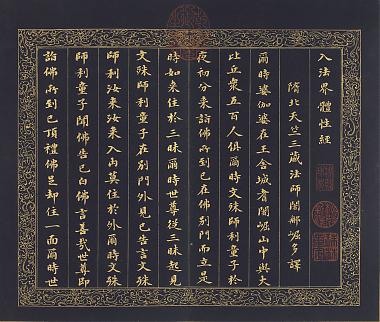 入法界體性經
隋北天竺三藏法師闍那崛多譯
爾時婆伽婆在王舍城耆闍崛山中與大
比丘衆五百人俱爾時文殊師利童子於
夜初分來詣佛所到已在佛別門而立是
時如來住於三昧爾時世尊從三昧起見
文殊師利童子在別門外見已告言文殊
師利汝來汝來入內莫住於外爾時文殊
師利童子聞佛告已白佛言善哉世尊即
詣佛所到已頂禮佛足却住一面爾時世